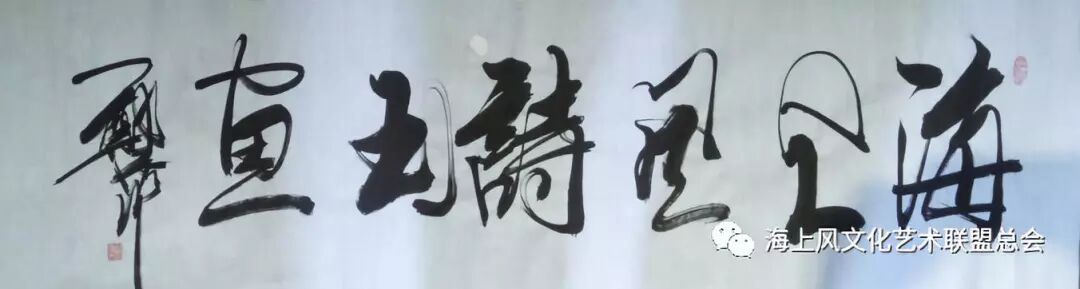 海上风詩书画
海上风文化艺术联盟总会